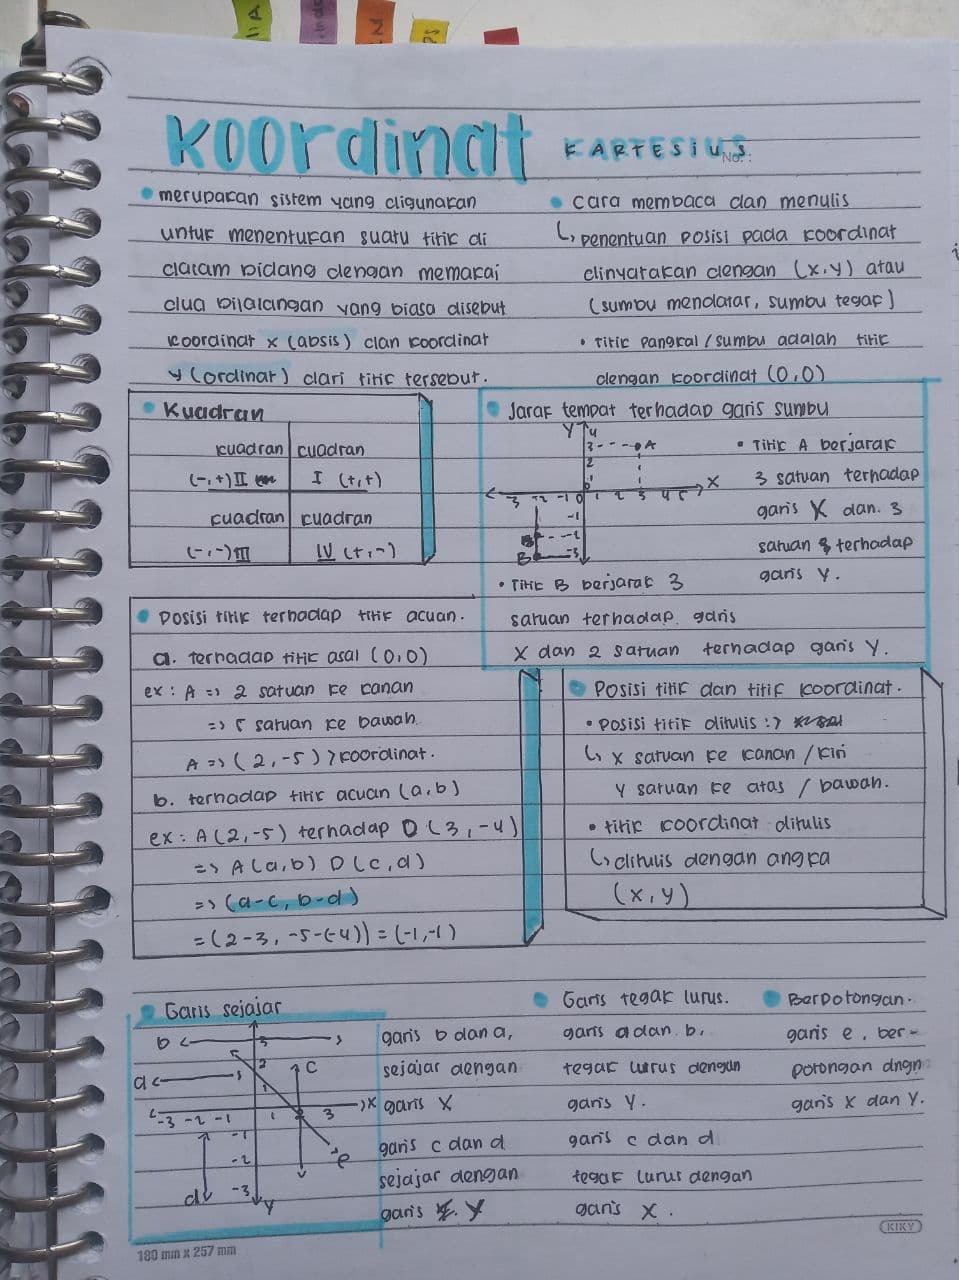 Koordinat KARTESIUS
No. :
• merupakan sistem yang digunakan
untuk menentukan suatu titik di
dalam bidang dengan memakai
dua bilalangan yang biasa disebut
koordinat x (absis) dan koordinat
y (ordinat) dari titik tersebut.
• cara membaca dan menulis
↳ penentuan posisi pada koordinat
dinyatakan dengan (x,y) atau
(sumbu mendatar, sumbu tegak)
• Titik pangkal / sumbu adalah titik
dengan koordinat (0,0)
• Kuadran
kuadran kuadran
(-,+) II I (+,+)
kuadran kuadran
(-,-) III IV (+,-)
• Jarak tempat terhadap garis sumbu
Y 4
3 A
2
1
-3 -2 -1 0 1 2 3 4 5 X
-1
-2
B -3
• Titik A berjarak
3 satuan terhadap
garis X dan. 3
satuan terhadap
garis Y.
• Titik B berjarak 3
satuan terhadap garis
X dan 2 satuan terhadap garis Y.
• Posisi titik terhadap titik acuan.
a. terhadap titik asal (0,0)
ex : A => 2 satuan ke kanan
=> 5 satuan ke bawah
A => (2,-5) > koordinat.
b. terhadap titik acuan (a,b)
ex : A (2,-5) terhadap D (3,-4)
=> A (a,b) D (c,d)
=> (a-c, b-d)
= (2-3, -5-(-4)) = (-1,-1)
• Posisi titik dan titik koordinat.
• posisi titik ditulis :>
↳ x satuan ke kanan / kiri
y satuan ke atas / bawah.
• titik koordinat ditulis
↳ ditulis dengan angka
(x,y)
• Garis sejajar
b 3
2 c
a
1
-3 -2 -1 1 2 3 X
-1
-2 e
d -3 Y
garis b dan a,
sejajar dengan
garis X
garis c dan d
sejajar dengan
garis Y
• Garis tegak lurus.
garis a dan b,
tegak lurus dengan
garis Y.
garis c dan d
tegak lurus dengan
garis X.
• Berpotongan.
garis e, ber-
potongan dngn
garis X dan Y.
KIKY
180 mm x 257 mm